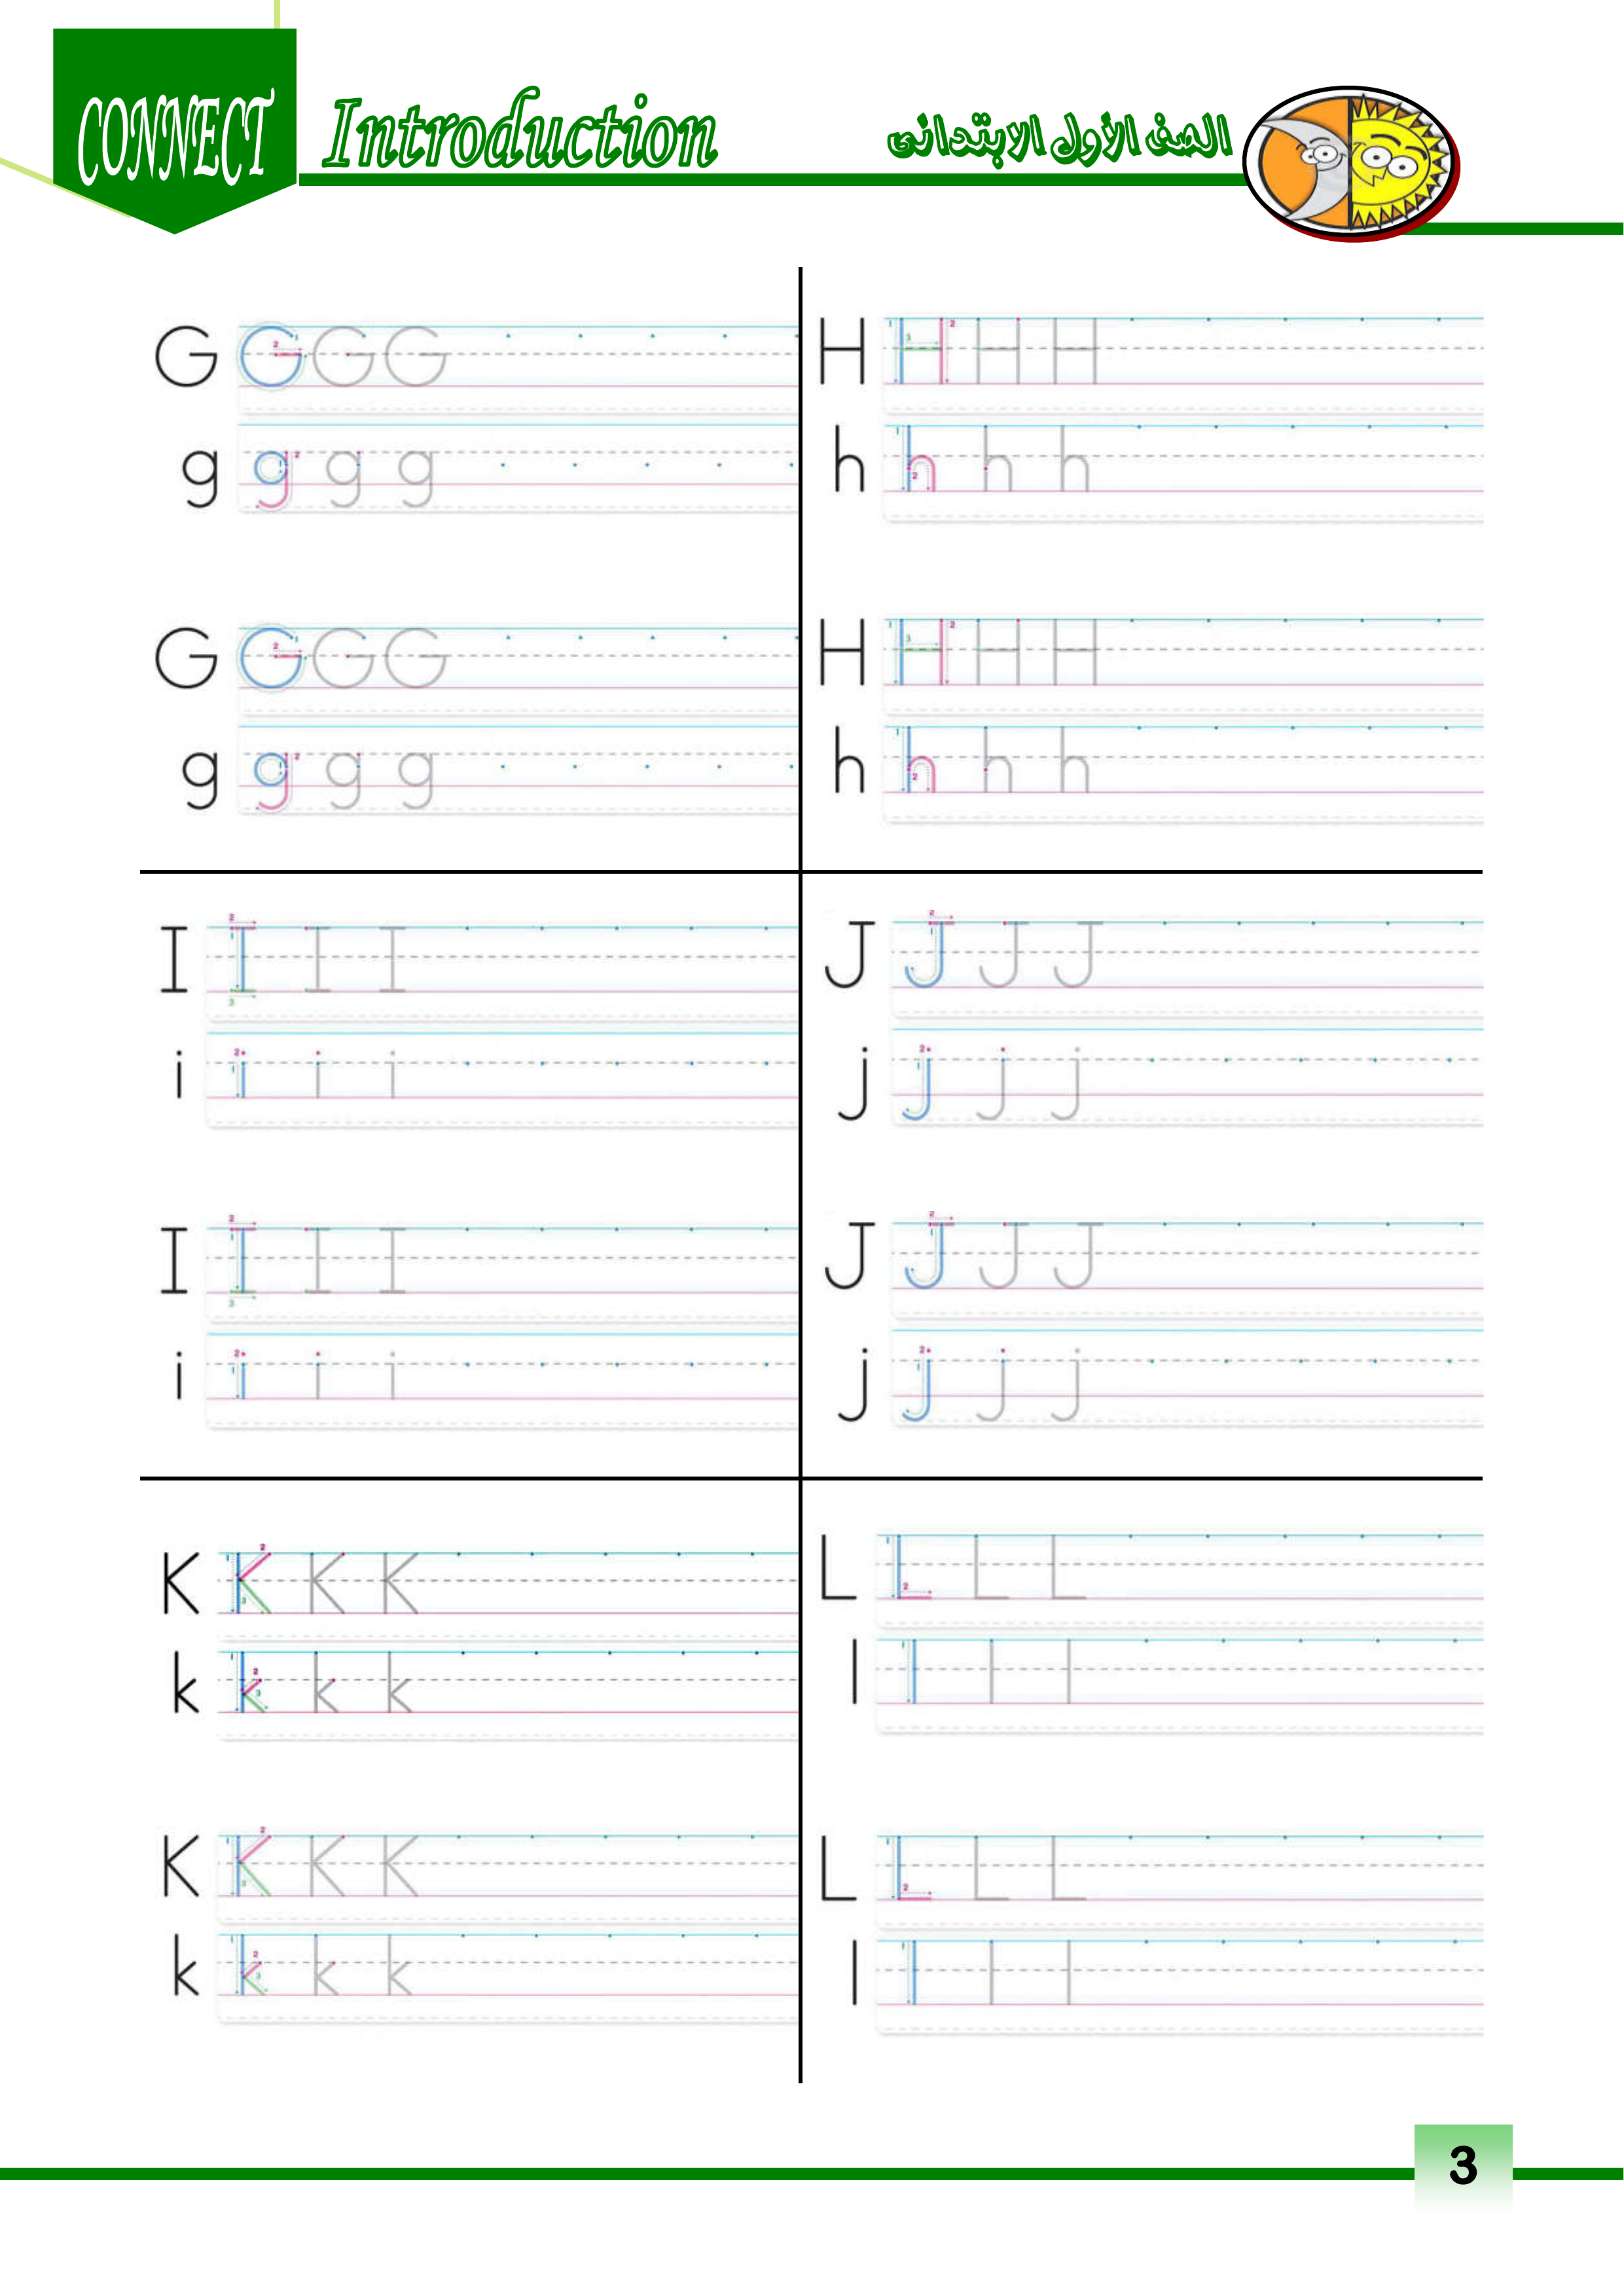 CONNECT
Introduction
الصف الأول الابتدائى
G G G G
g g g g
G G G G
g g g g
H H H H
h h h h
H H H H
h h h h
I I I I
i i i i
I I I I
i i i i
J J J J
j j j j
J J J J
j j j j
K K K K
k k k k
K K K K
k k k k
L L L L
l l l l
L L L L
l l l l
3